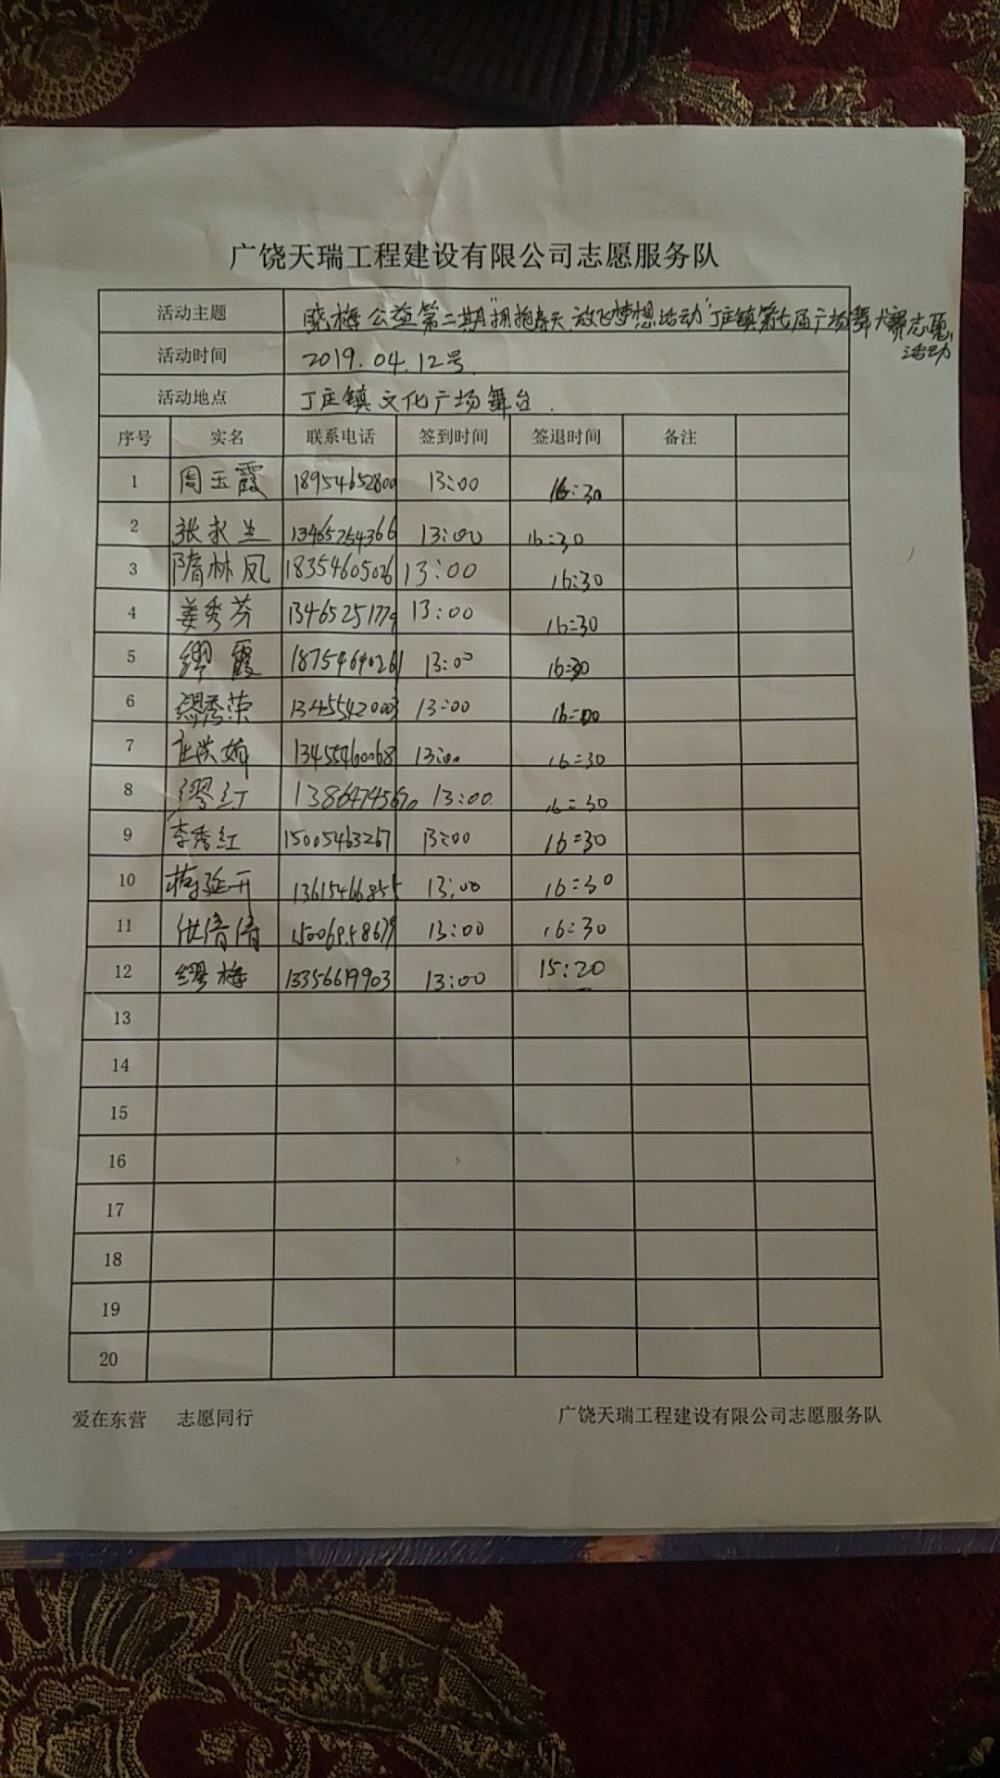 广饶天瑞工程建设有限公司志愿服务队
活动主题 晓梅公益第二期"拥抱春天、放飞梦想活动"丁庄镇第七届广场舞大赛志愿
活动
活动时间 2019.04.12号
活动地点 丁庄镇文化广场舞台.
序号 实名 联系电话 签到时间 签退时间 备注
1 周玉霞 18954652800 13:00 16:30
2 张求兰 13465254366 13:00 16:30
3 隋林凤 18354605026 13:00 16:30
4 姜秀芬 13465251779 13:00 16:30
5 缪霞 18754690261 13:00 16:30
6 缪秀荣 13455420003 13:00 16:00
7 13455460068 13:00 16:30
8 缪红 13864745670 13:00 16:30
9 李秀红 15005463267 13:00 16:30
10 梅延开 13615466855 13:00 16:30
11 倩倩 13:00 16:30
12 缪梅 13356619903 13:00 15:20
13
14
15
16
17
18
19
20
爱在东营 志愿同行 广饶天瑞工程建设有限公司志愿服务队